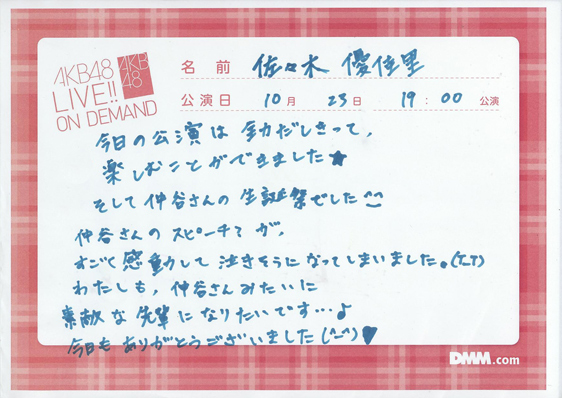 AKB48
LIVE!!
ON DEMAND
AKB
48
名前 佐々木 優佳里
公演日 10月 23日 19:00 公演
今日の公演は 全力だしきって、
楽しむことができました★
そして仲谷さんの 生誕祭でした^^
仲谷さんの スピーチが、
すごく感動して 泣きそうになってしまいました。(T_T)
わたしも、仲谷さんみたいに
素敵な 先輩に なりたいです…♪
今日も ありがとうございました(^-^)♥
DMM.com